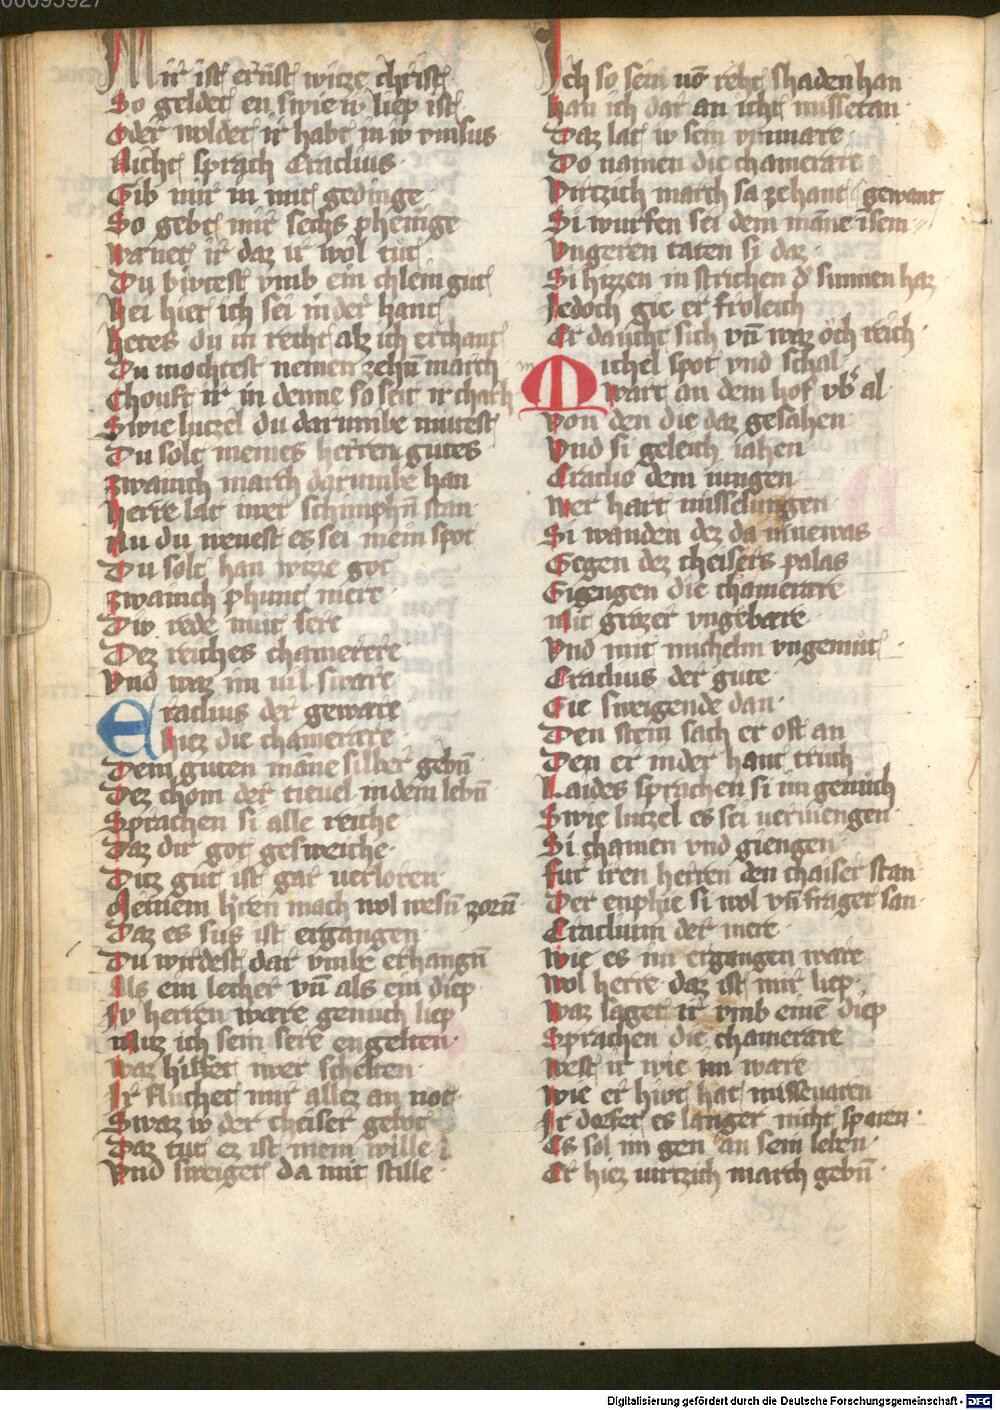 00095927
Mir ist ernst wizze christ
So geldet en swie iv liep ist
Oder woldet ir habt in iv vmsus
Nicht sprach Eraclius
Gib mir in mit gedinge
So gebt mir sechs phenige
Wænet ir daz ir wol tut
Du bivtest vmb ein chlein gut
Hei hiet ich sei in der hant
Hetes du in recht als ich erchant
Du mochtest nemen zehn march
Chouft ir in denne so seit ir charch
Swie lutzel du darumbe mutest
Du solt meines herren gutes
Zwainch march darumbe han
Herre lat iwer schimphn stan
Nu du wenest es sei mein spot
Du solt han wizze got
Zwainch phunt mere
Div rede mut sere
Dez reiches chamerere
Vnd waz im vil sware
Eraclius der geware
Hiez die chamerare
Dem guten manne silber gebn
Dez chom der tievel in dem lebn
Sprachen si alle reiche
Daz dir got gesweiche
Ditz gut ist gar verloren
Meinem hren mach wol wesn zorn
Daz es sus ist ergangen
Du wirdest dar vmbe erhangn
Als ein lecher vn als ein diep
Iv herren ware genuch liep
Muz ich sein sere engelten
Waz hilfet iwer schelten
Ir fluchet mir allez an not
Swaz iv der cheiser gebot
Daz tut ez ist mein wille
Vnd sweiget da mit stille
Ich so sein vo reht shaden han
Han ich dar an icht missetan
Daz lat iv sein vnmare
Do namen die chamerare
Virtzich march sa zehant gewant
Si wurfen sei dem mane in sein
Vngeren taten si daz
Si hizzen in strichen d sunnen haz
Jedoch gie er froleich
Er daucht sich vn waz och reich
m
Michel spot vnd schal
Wart an dem hof vb al
Von den die daz gesahen
Vnd si geleich iahen
Eraclio dem iungen
Wer hart misselungen
Si wanden dez da ninewas
Gegen dez cheisers palas
Gigengen die chamerare
Mit grozer vngebare
Vnd mit michelm vngemut
Eraclius der gute
Gie sweigende dan
Den stein sach er oft an
Den er in der hant truch
Laides sprachen si im genuch
Swie lutzel es sei veruiengen
Si chamen vnd giengen
Fur iren herren den chaiser stan
Der enphie si wol vn fraget san
Eraclium der mere
Wie es im ergangen ware
Wol herre daz ist mir liep
Waz saget ir vmb eine diep
Sprachen die chamerare
West ir wie im ware
Wie er hivt hat misseuaren
Ir dorfet es langer nicht sparen
Es sol im gen an sein leben
Er hiez virtzich march gebn
Digitalisierung gefördert durch die Deutsche Forschungsgemeinschaft - DFG